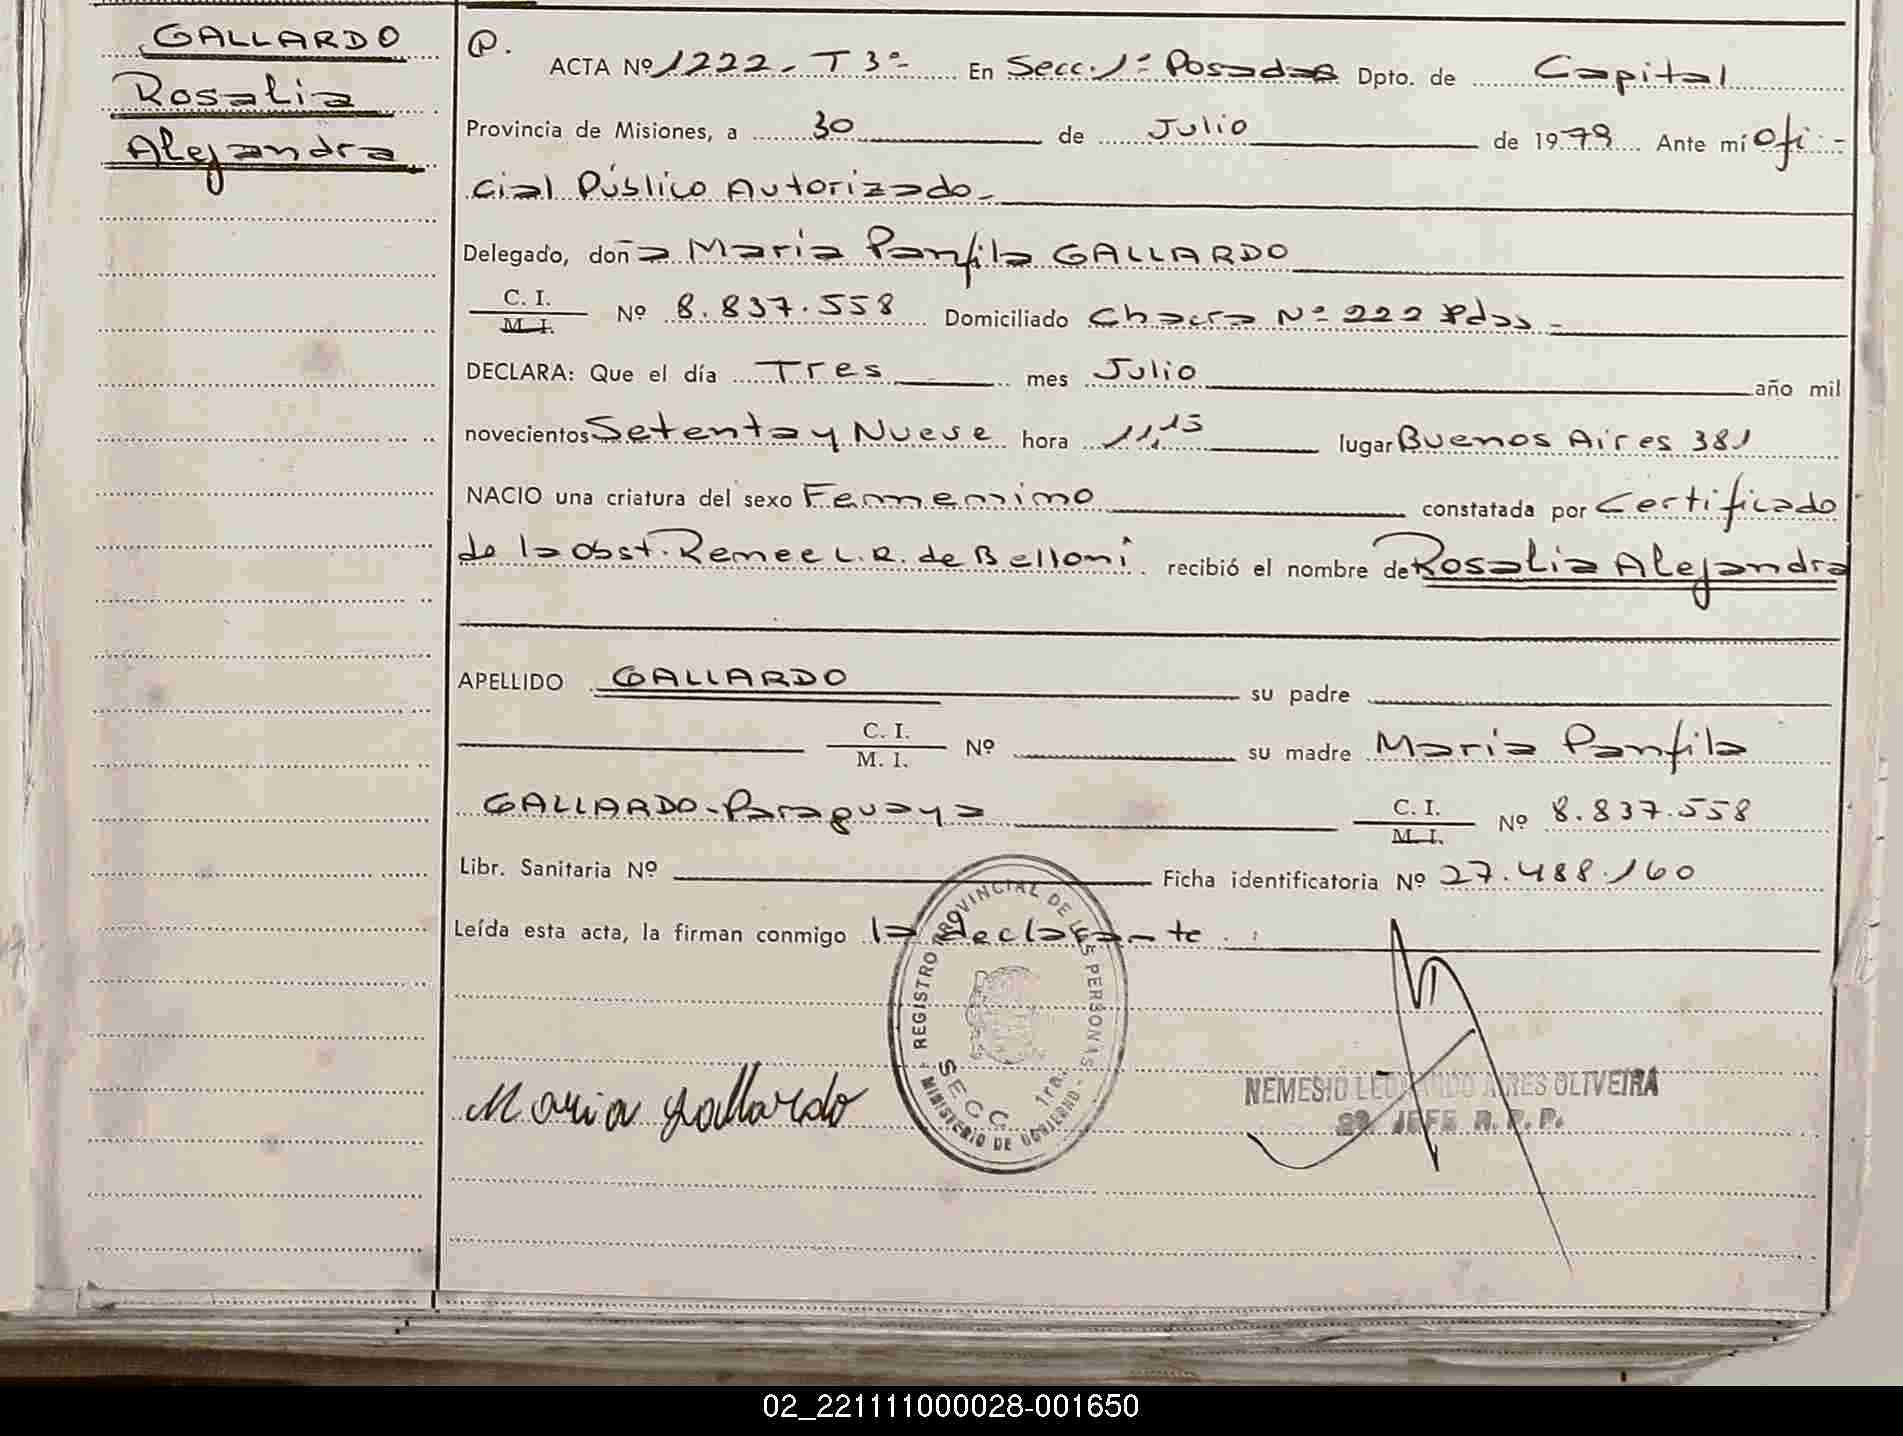 GALLARDO
Rosalia
Alejandra
P.
ACTA Nº 1222 - T 3º - En Secc. 1ª Posadas Dpto. de Capital
Provincia de Misiones, a 30 de Julio de 1979 Ante mí Ofi -
cial Público Autorizado -
Delegado, doña Maria Panfila GALLARDO
C. I.
M. I. Nº 8.837.558 Domiciliado Chacra Nº 222 Pdas -
DECLARA: Que el día Tres mes Julio año mil
novecientos Setenta y Nueve hora 11,15 lugar Buenos Aires 381
NACIO una criatura del sexo Femenino constatada por Certificado
de la Obst. Renee L. R. de Belloni recibió el nombre de Rosalia Alejandra
APELLIDO GALLARDO su padre
C. I.
M. I. Nº su madre Maria Panfila
GALLARDO - Paraguaya C. I.
M. I. Nº 8.837.558
Libr. Sanitaria Nº Ficha identificatoria Nº 27.488.160
Leída esta acta, la firman conmigo la declarante
REGISTRO PROVINCIAL DE LAS PERSONAS - MINISTERIO DE GOBIERNO -
SECC. 1ra.
Maria Gallardo
NEMESIO LEONARDO AIRES OLIVEIRA
2º JEFE R. P. P.
02_221111000028-001650